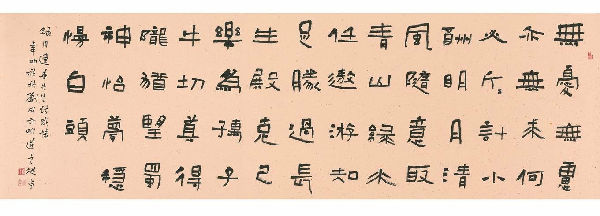 無憂無慮
亦無求何
必斤〻計小
酬明月清
風隨意取
青山綠水
任遨游知
足勝過長
生殿克己
樂為孺子
牛切莫得
隴猶望蜀
神怡夢穩
白頭